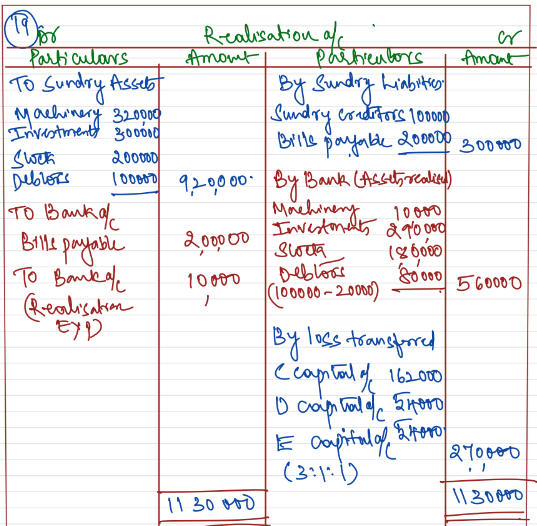 19
Dr Realisation a/c Cr
Particulars Amount Particulars Amount
To Sundry Assets
Machinery 320000
Investments 300000
Stock 200000
Debtors 100000 920000
To Bank a/c
Bills payable 200000
To Bank a/c 10000
(Realisation
EXP)
1130000
By Sundry Liabilities
Sundry creditors 100000
Bills payable 200000 300000
By Bank (Assets realised)
Machinery 10000
Investments 290000
Stock 180000
Debtors 80000 560000
(100000-20000)
By loss transferred
C capital a/c 162000
D capital a/c 54000
E capital a/c 54000
270000
(3:1:1)
1130000